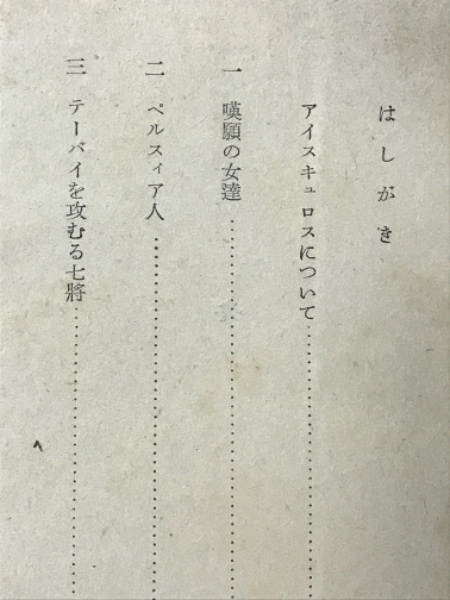 はしがき
アイスキュロスについて……………………
一 嘆願の女達……………………………
二 ペルスィア人……………………………
三 テーバイを攻むる七將……………………